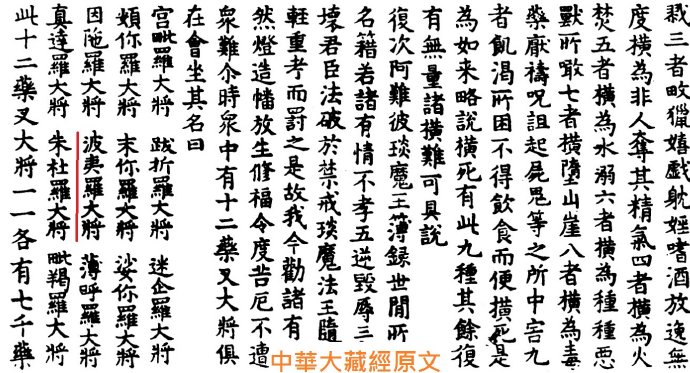 戮三者畋獵嬉戲躭婬嗜酒放逸無
度橫為非人奪其精氣四者橫為火
焚五者橫為水溺六者橫為種種惡
獸所噉七者橫墮山崖八者橫為毒
藥厭禱呪詛起屍鬼等之所中害九
者飢渴所困不得飲食而便橫死是
為如来略說橫死有此九種其餘復
有無量諸橫難可具說
復次阿難彼琰魔王簿錄世間所
名籍若諸有情不孝五逆毀辱三
壞君臣法破於禁戒琰魔法王隨
輕重考而罰之是故我今勸諸有
然燈造幡放生修福令度苦厄不遭
眾難尒時眾中有十二藥叉大將俱
在會坐其名曰
宮毗羅大將 跋折羅大將 迷企羅大將
頞你羅大將 末你羅大將 娑你羅大將
因陁羅大將 波夷羅大將 薄呼羅大將
真達羅大將 朱杜羅大將 毗羯羅大將
此十二藥叉大將一一各有七千藥
中華大藏經原文